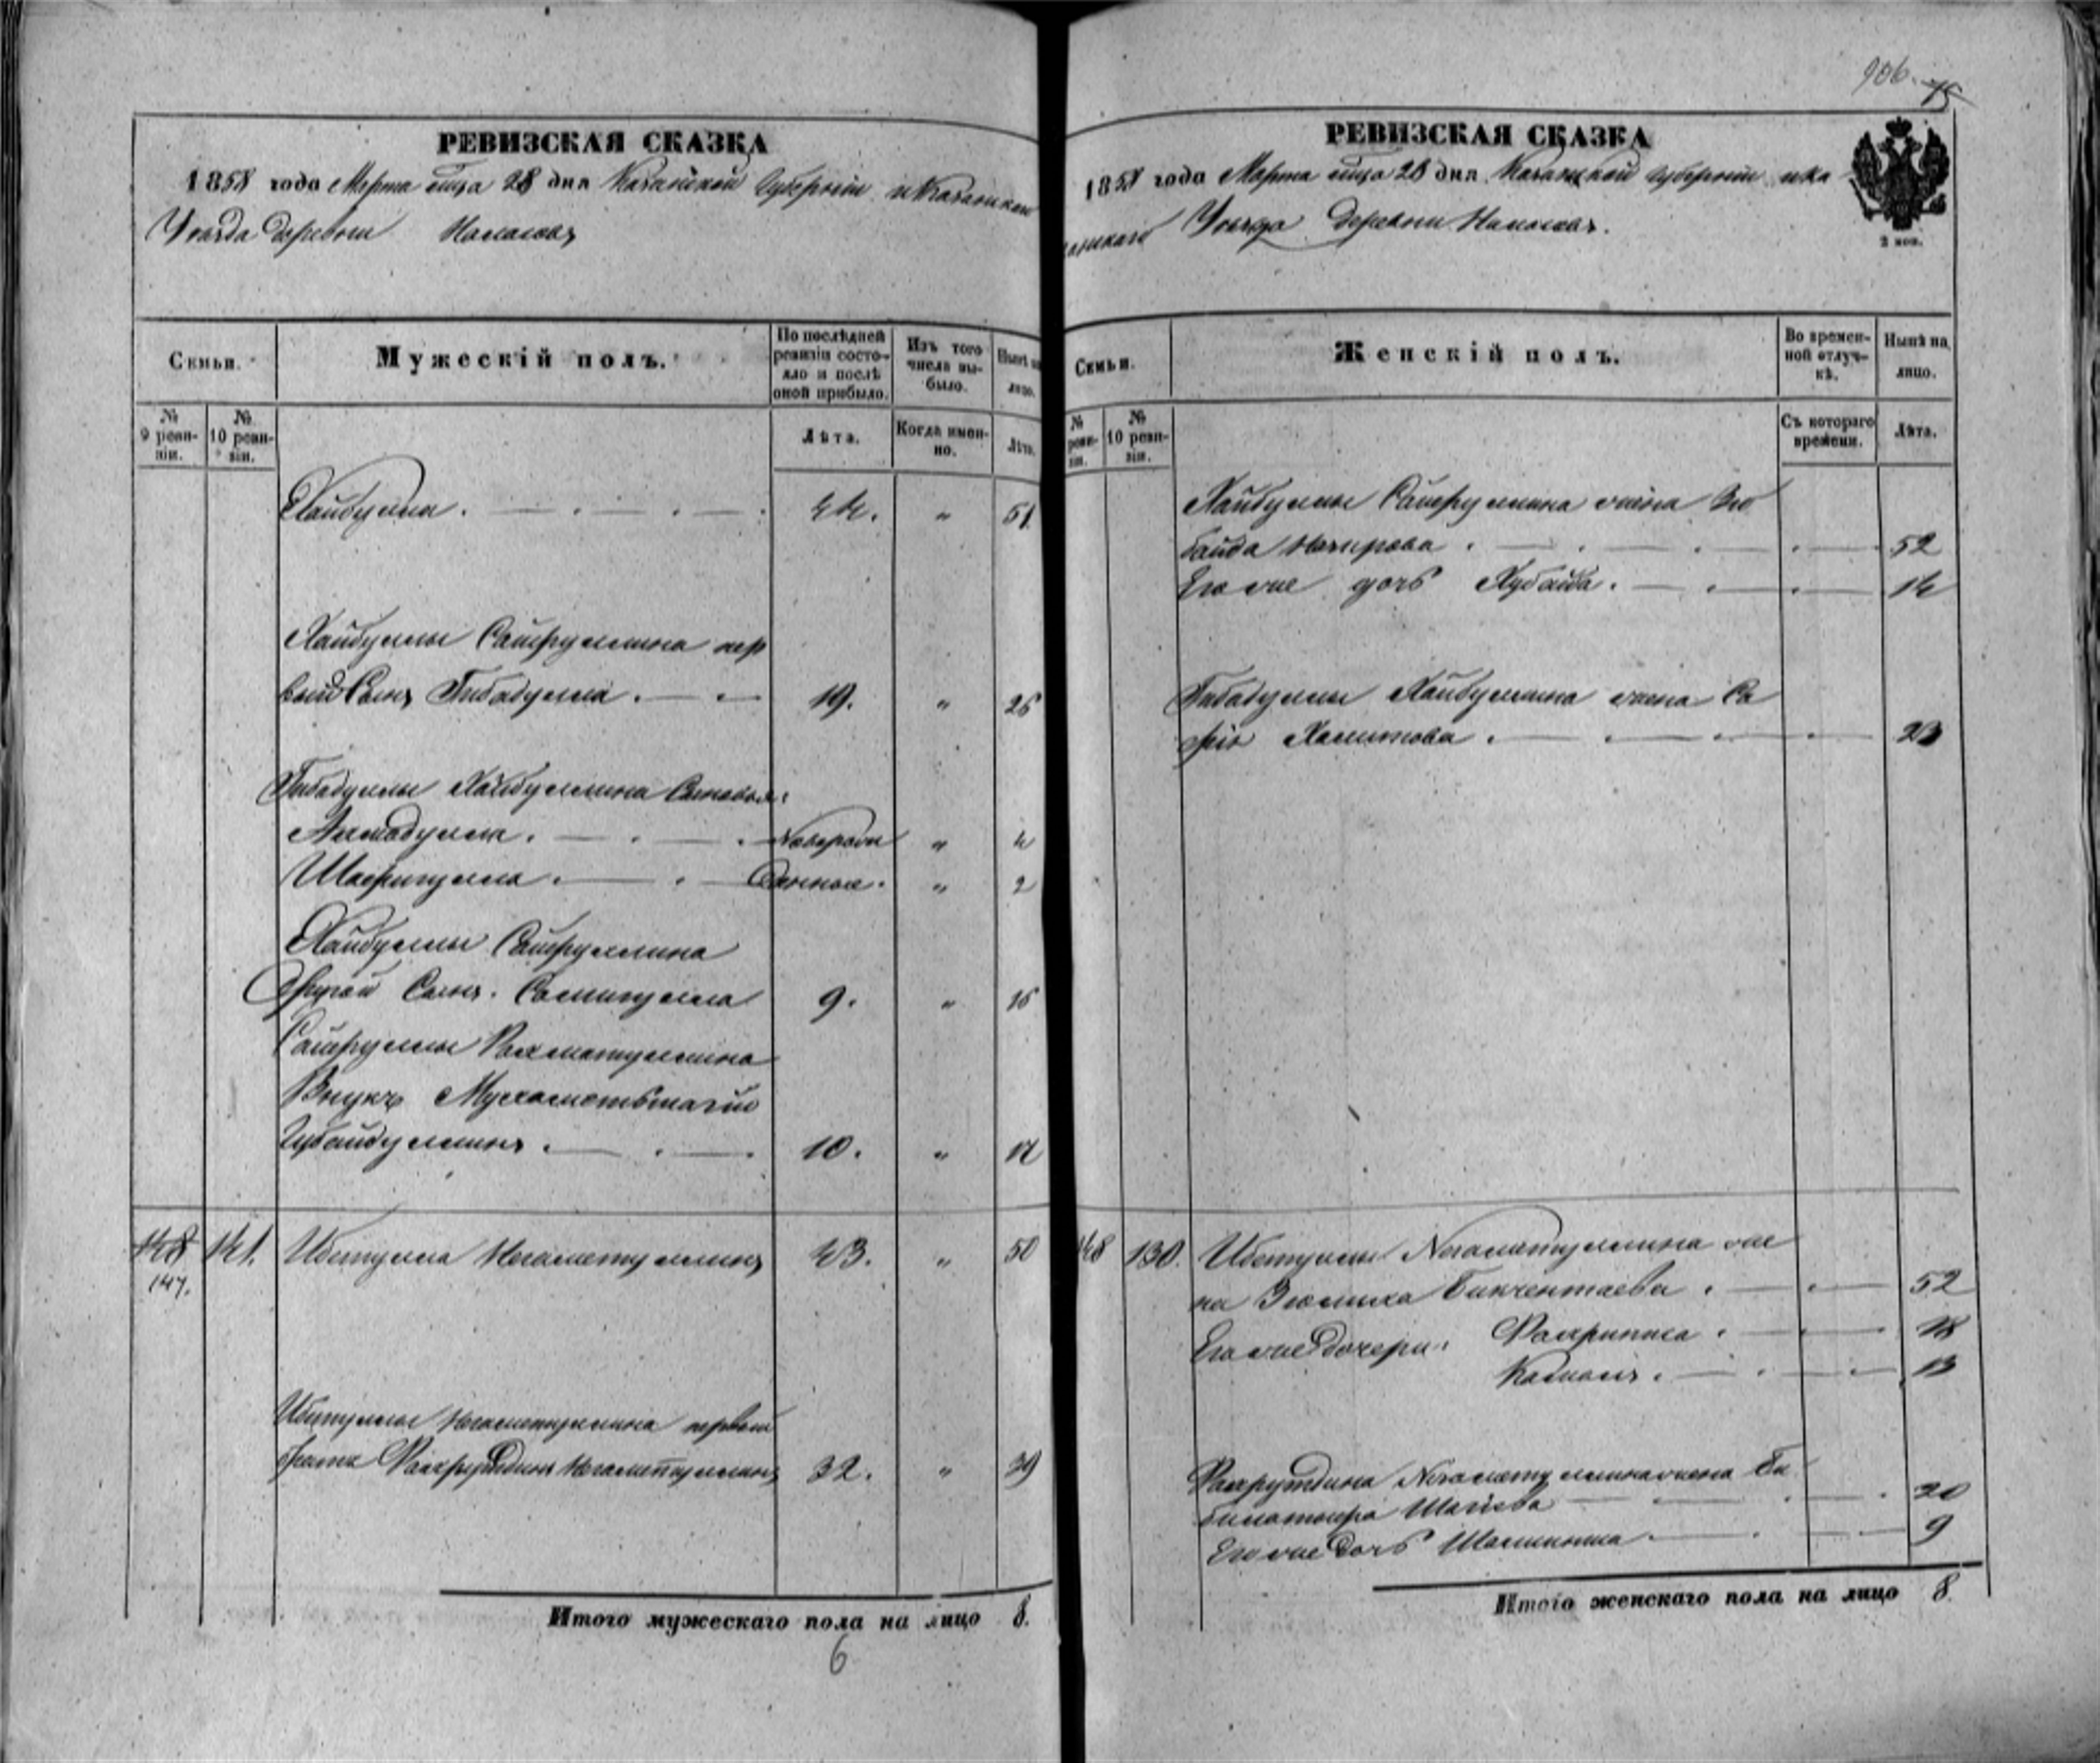 РЕВИЗСКАЯ СКАЗКА
1858 года Марта мца 28 дня Казанской Губернии и Казанскаго
Уезда деревни
Семьи.
Мужескій полъ.
По послѣдней ревизіи состояло и послѣ оной прибыло.
Изъ того числа выбыло.
Нынѣ на лицо.
№ 9 ревизіи.
№ 10 ревизіи.
Лѣта.
Когда именно.
Лѣта.
Хайбулла 44. " 51
Хайбуллы Сайфуллина пер
вый Сынъ Гибадулла 19. " 26
Гибадуллы Хайбуллина Сыновья:
Ахмадулла Новорож " 4
Шафигулла денные. " 2
Хайбуллы Сайфуллина
Другой Сынъ Самигулла 9. " 16
Сайфуллы Рахматуллина
Внукъ
Губайдуллинъ 10. " 17
148 141. Ибетулла Негаметуллинъ 43. " 50
147.
Ибетуллы Негаметуллина первый
братъ Фахрутдинъ Негаметуллинъ 32. " 39
Итого мужескаго пола на лицо 8.
6
906. 75
РЕВИЗСКАЯ СКАЗКА
1858 года Марта мца 28 дня Казанской Губернии и Ка
занскаго Уезда деревни
2 коп.
Семьи.
Женскій полъ.
Во временной отлучкѣ.
Нынѣ на лицо.
№ ревизіи.
№ 10 ревизіи.
Съ котораго времени.
Лѣта.
Хайбуллы Сайфуллина жена Зю
байда 52
Его же дочь Хубайда 14
Гибадуллы Хайбуллина жена Са
фія Хамитова 23
148 130. Ибетуллы Негаметуллина же
на Зюлиха Бикчентаева 52
Его же дочери: 18
13
Фахрутдина Негаметуллина жена Би
20
Его же дочь 9
Итого женскаго пола на лицо 8.